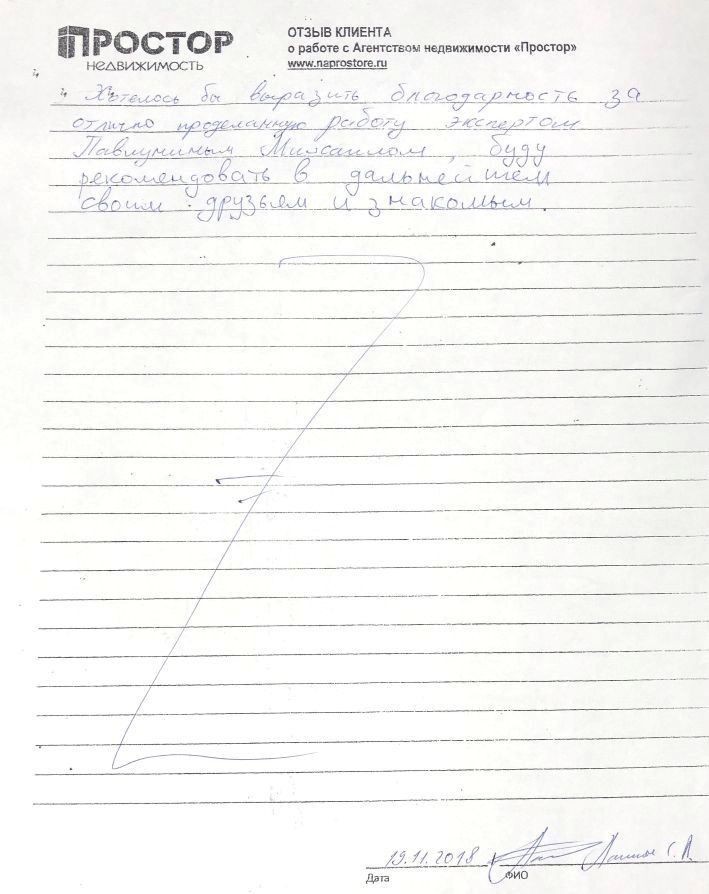 ПРОСТОР
НЕДВИЖИМОСТЬ
ОТЗЫВ КЛИЕНТА
о работе с Агентством недвижимости «Простор»
www.naprostore.ru
Хотелось бы выразить благодарность за
отлично проделанную работу экспертом
Михаилом, буду
рекомендовать в дальнейшем
своим друзьям и знакомым.
19.11.2018
Дата
ФИО